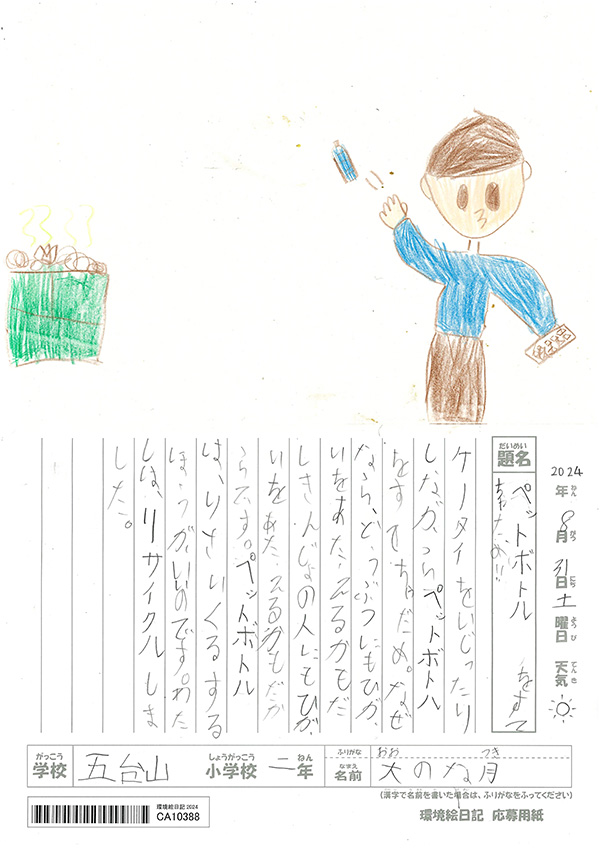 2024
年 ねん
8月 がつ
31日 にち
土曜日 ようび
天気 てんき
題名 だいめい
ペットボトル をすて
ちゃだめ!!
ケータイをいじったり
しながらペットボトル
をすてちゃだめ。なぜ
なら、どうぶつにもひが
いをあたえるかもだ
しきんじょの人にもひが
いをあたえるかもだか
らです。ペットボトル
は、りさいくるする
ほうがいいのです。わた
しは、リサイクルしま
した。
がっこう 学校
五台山
しょうがっこう 小学校
二年 ねん
ふりがな
なまえ 名前
おお つき
大のな月
(漢字で名前を書いた場合は、ふりがなをふってください)
環境絵日記2024
CA10388
環境絵日記 応募用紙